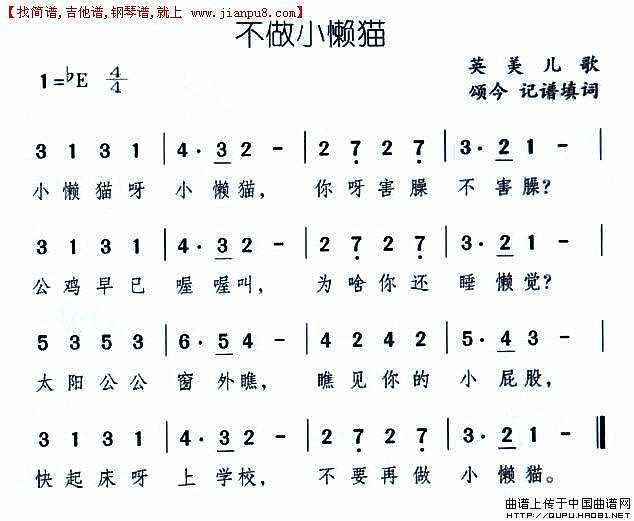 【找简谱,吉他谱,钢琴谱,就上 www.jianpu8.com】
不做小懒猫
1=♭E 4/4
英美儿歌
颂今 记谱填词
3 1 3 1 | 4· 3 2 - | 2 7 2 7 | 3· 2 1 - |
小懒猫呀 小懒猫， 你呀害臊 不害臊？
3 1 3 1 | 4· 3 2 - | 2 7 2 7 | 3· 2 1 - |
公鸡早已 喔喔叫， 为啥你还 睡懒觉？
5 3 5 3 | 6· 5 4 - | 4 2 4 2 | 5· 4 3 - |
太阳公公 窗外瞧， 瞧见你的 小屁股，
3 1 3 1 | 4· 3 2 - | 2 7 2 7 | 3· 2 1 - ‖
快起床呀 上学校， 不要再做 小懒猫。
曲谱上传于中国曲谱网
http://QUPU.HAO81.NET